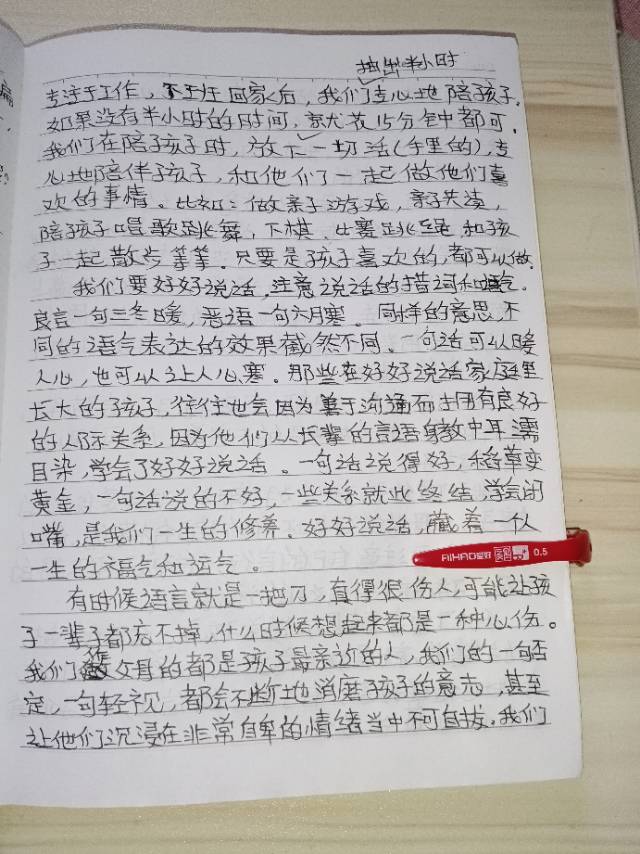 抽出半小时
专注于工作，下班回家后，我们专心地陪孩子，
如果没有半小时的时间，就尤花15分钟都可。
我们在陪孩子时，放下一切活(手里的)，专
心地陪伴孩子，和他们了一起做他们喜
欢的事情。比如：做亲子游戏，亲子共读，
陪孩子唱歌跳舞，下棋，比赛跳绳和孩
子一起散步等等。只要是孩子喜欢的，都可以做。
我们要好好说话，注意说话的措词和语气。
良言一句三冬暖，恶语一句六月寒。同样的意思，不
同的语气表达的效果截然不同。一句话可以暖
人心，也可以让人心寒。那些在好好说话家庭里
长大的孩子，往往也会因为善于沟通而拥有良好
的人际关系，因为他们从长辈的言语身教中耳濡
目染，学会了好好说话。一句话说得好，稻草变
黄金，一句话说的不好，一些关系就此终结，学会闭
嘴，是我们一生的修养。好好说话，藏着一个人
一生的福气和运气。
AIHAO 爱好 0.5
有时候语言就是一把刀，真得很伤人，可能让孩
子一辈子都忘不掉，什么时候想起来都是一种心伤。
我们做父母的都是孩子最亲近的人，我们的一句否
定，一句轻视，都会不断地消磨孩子的意志，甚至
让他们沉浸在非常自卑的情绪当中不可自拔。我们